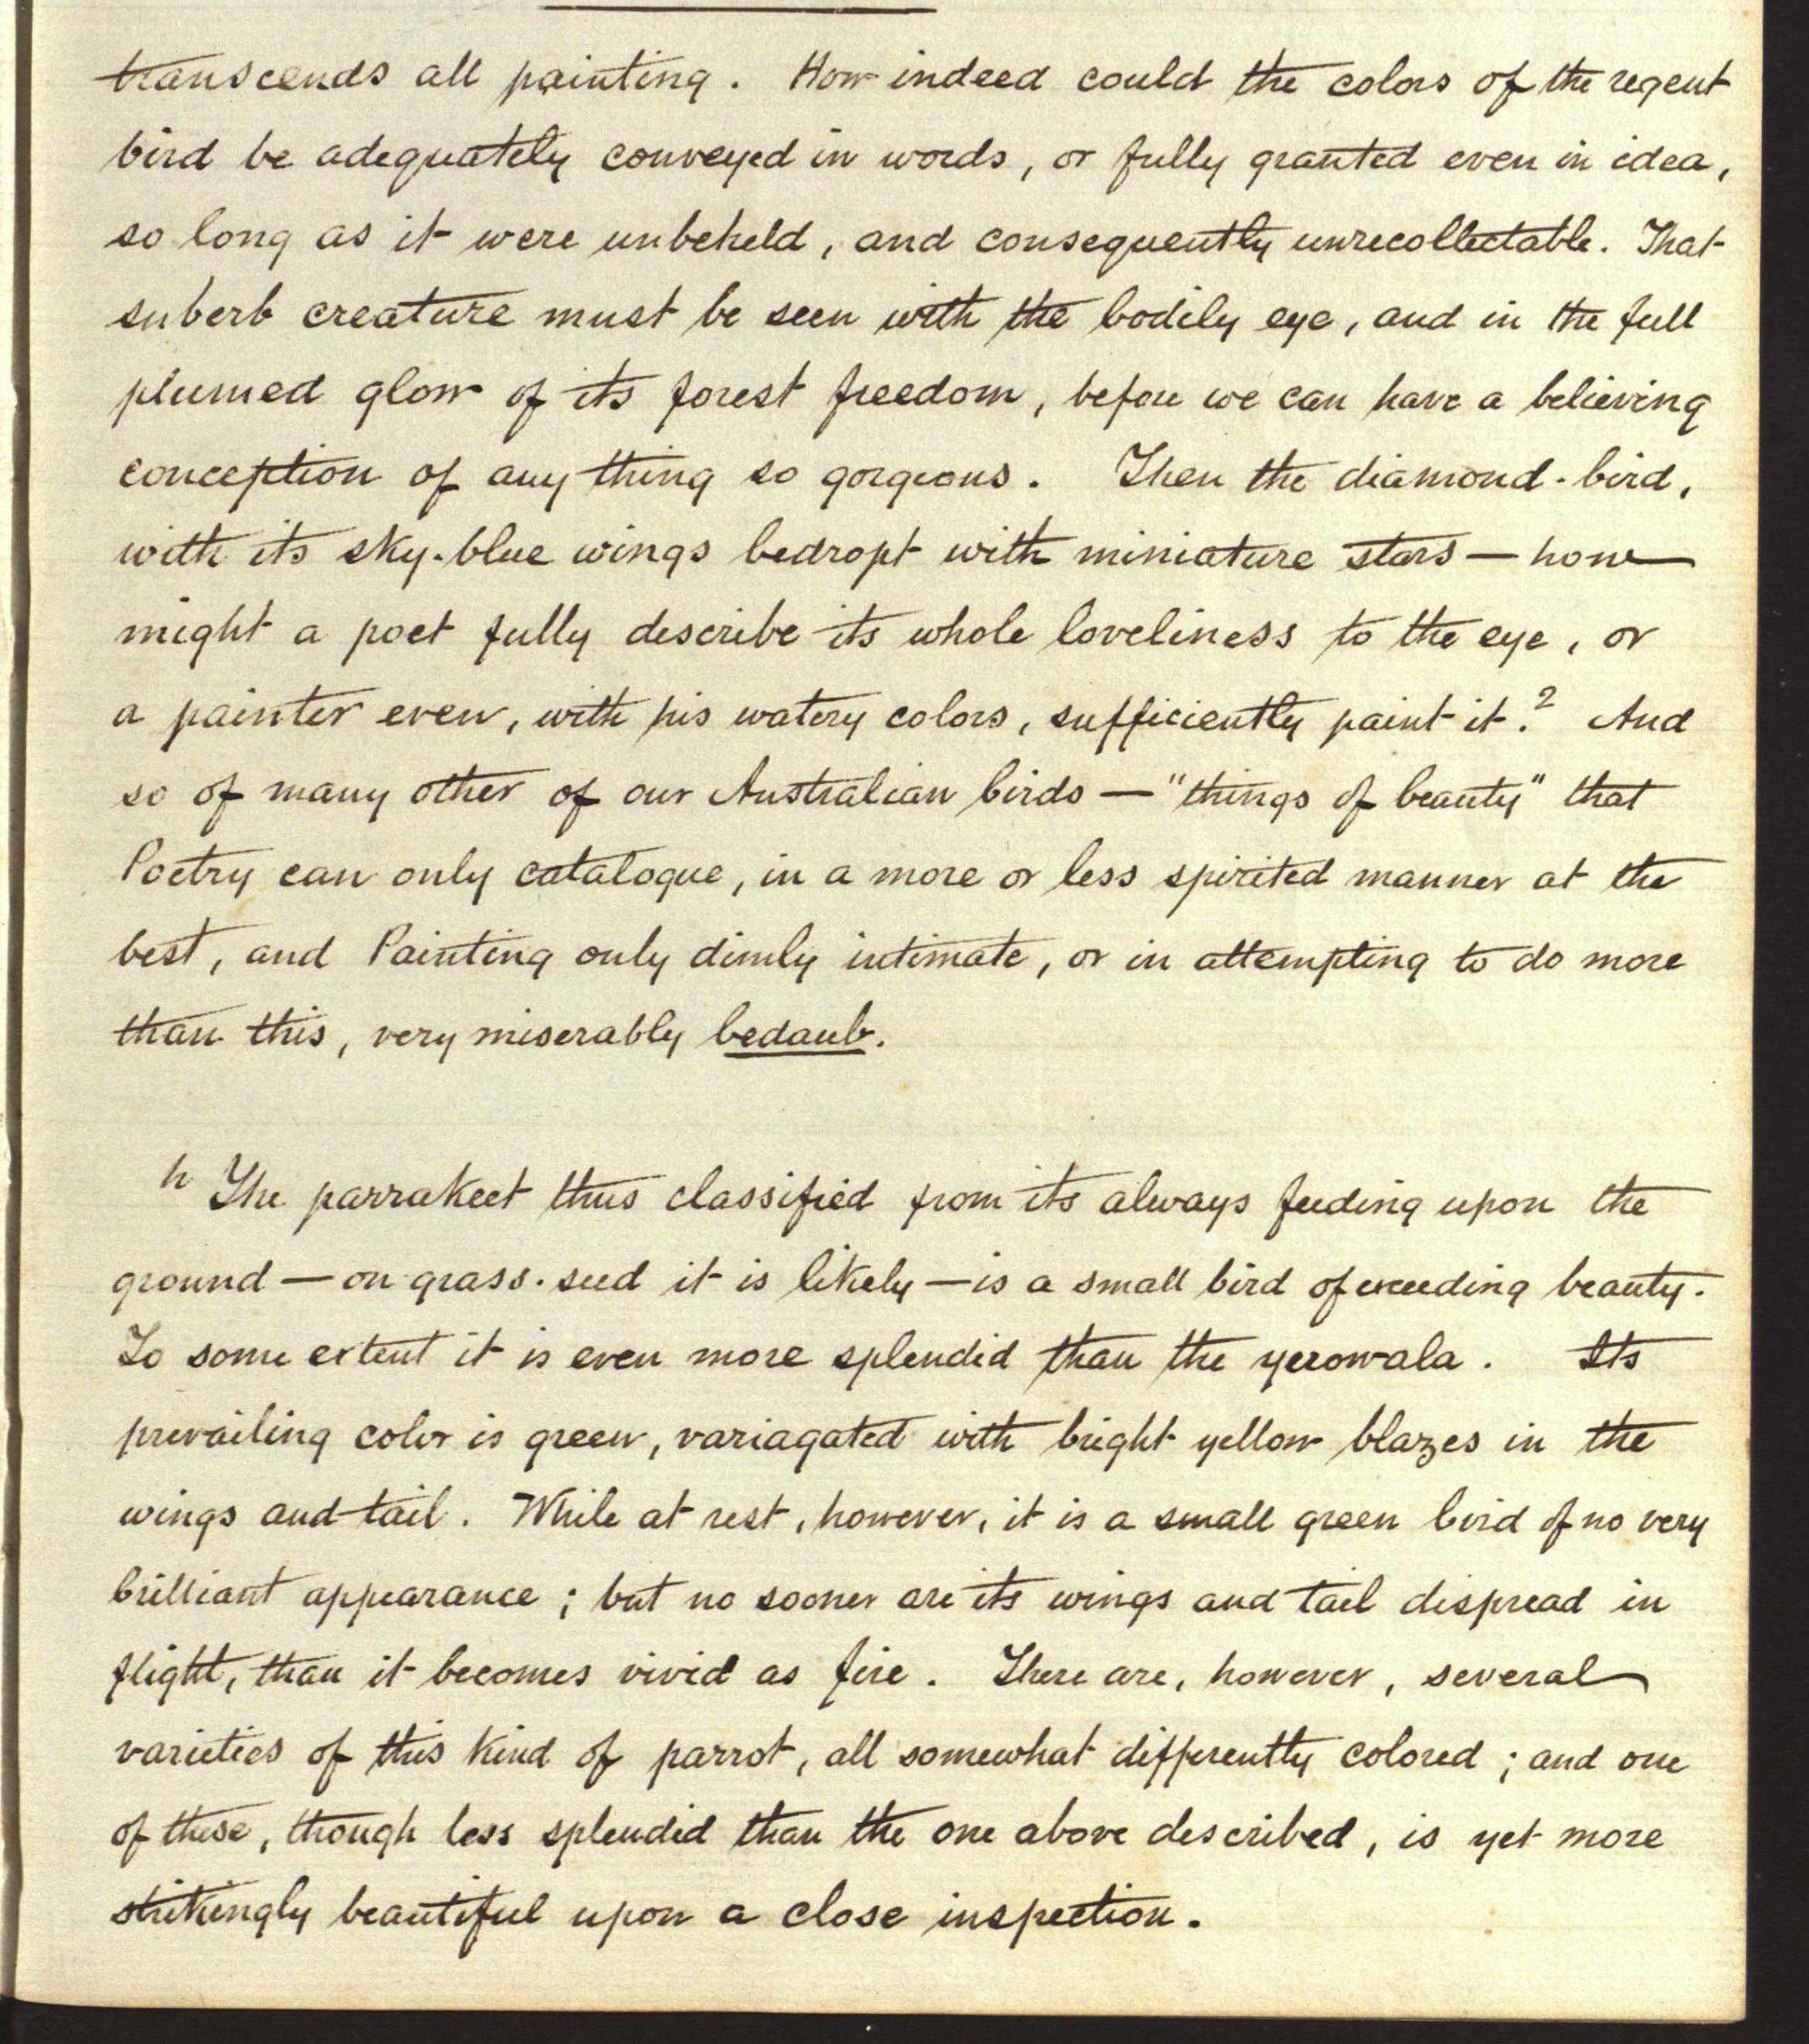 transcends all painting. How indeed could the colors of the regent
bird be adequately conveyed in words, or fully granted even in idea,
so long as it were unbeheld, and consequently unrecollectable. That
suberb creature must be seen with the bodily eye, and in the full
plumed glow of its forest freedom, before we can have a believing
conception of any thing so gorgeous. Then the diamond-bird,
with its sky-blue wings bedropt with miniature stars — how
might a poet fully describe its whole loveliness to the eye, or
a painter even, with his watery colors, sufficiently paint it.? And
so of many other of our Australian birds — "things of beauty" that
Poetry can only catalogue, in a more or less spirited manner at the
best, and Painting only dimly intimate, or in attempting to do more
than this, very miserably bedaub.
h The parrakeet thus classified from its always feeding upon the
ground — on grass-seed it is likely — is a small bird of exceeding beauty.
To some extent it is even more splendid than the yerowala. Its
prevailing color is green, variagated with bright yellow blazes in the
wings and tail. While at rest, however, it is a small green bird of no very
brilliant appearance; but no sooner are its wings and tail dispread in
flight, than it becomes vivid as fire. There are, however, several
varieties of this kind of parrot, all somewhat differently colored; and one
of these, though less splendid than the one above described, is yet more
strikingly beautiful upon a close inspection.